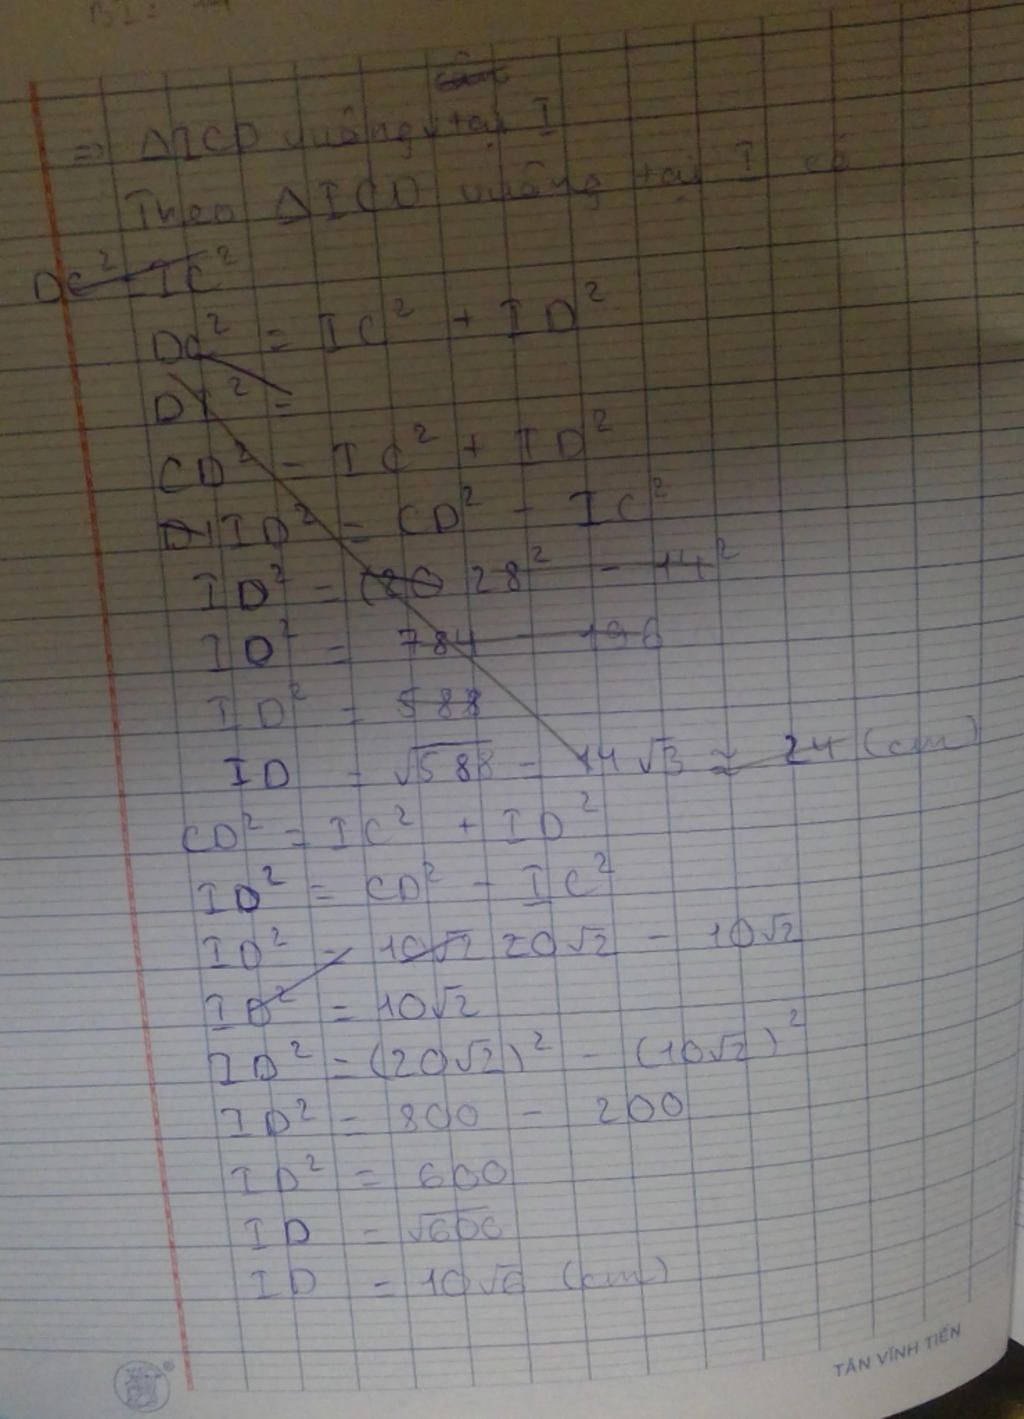 => ΔICD vuông tại I
Theo ΔICD vuông tại I có
DC² - IC²
DC² = IC² + ID²
DI² =
CD² = IC² + ID²
DI ID² = CD² - IC²
ID² = (20 28² - 14²
ID² = 784 - 196
ID² = 588
ID = √588 = 14√3 ≈ 24 (cm)
CD² = IC² + ID²
ID² = CD² - IC²
ID² = 10√2 20√2 - 10√2
ID² = 10√2
ID² = (20√2)² - (10√2)²
ID² = 800 - 200
ID² = 600
ID = √600
ID = 10√6 (cm)
TÂN VĨNH TIẾN